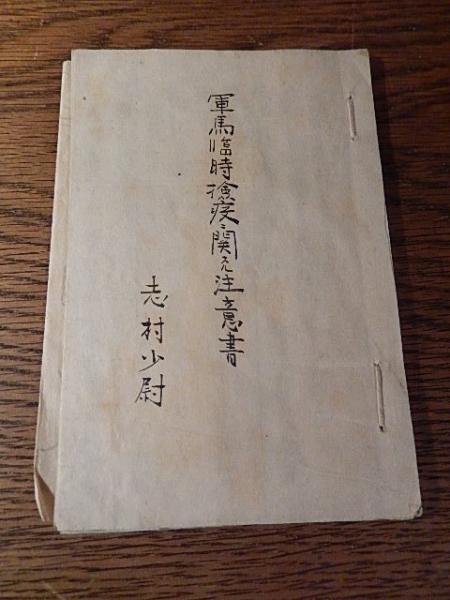 軍馬臨時檢疫ニ関スル注意書
志村少尉